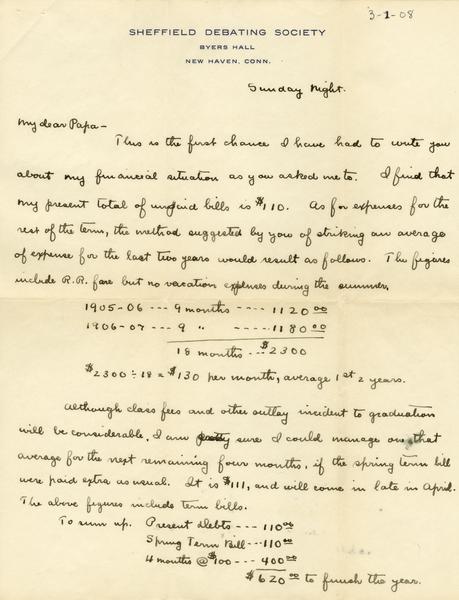 3-1-08
SHEFFIELD DEBATING SOCIETY
BYERS HALL
NEW HAVEN, CONN.
Sunday Night.
My dear Papa-
This is the first chance I have had to write you
about my financial situation as you asked me to. I find that
my present total of unpaid bills is $110. As for expenses for the
rest of the term, the method suggested by you of striking an average
of expense for the last two years would result as follows. The figures
include R.R. fare but no vacation expenses during the summer.
1905-06 --- 9 months ---- 1120 00
1906-07 -- 9 " ----- 1180 00
18 months --- $2300
$2300 ÷ 18 = $130 per month, average 1st 2 years.
Although class fees and other outlay incident to graduation
will be considerable, I am sure I could manage on that
average for the next remaining four months, if the spring term bill
were paid extra as usual. It is $111, and will come in late in April.
The above figures include term bills.
To sum up. Present Debts --- 110 00
Spring Term Bill --- 110 00
4 months @ $100 --- 400 00
$620 00 to finish the year.